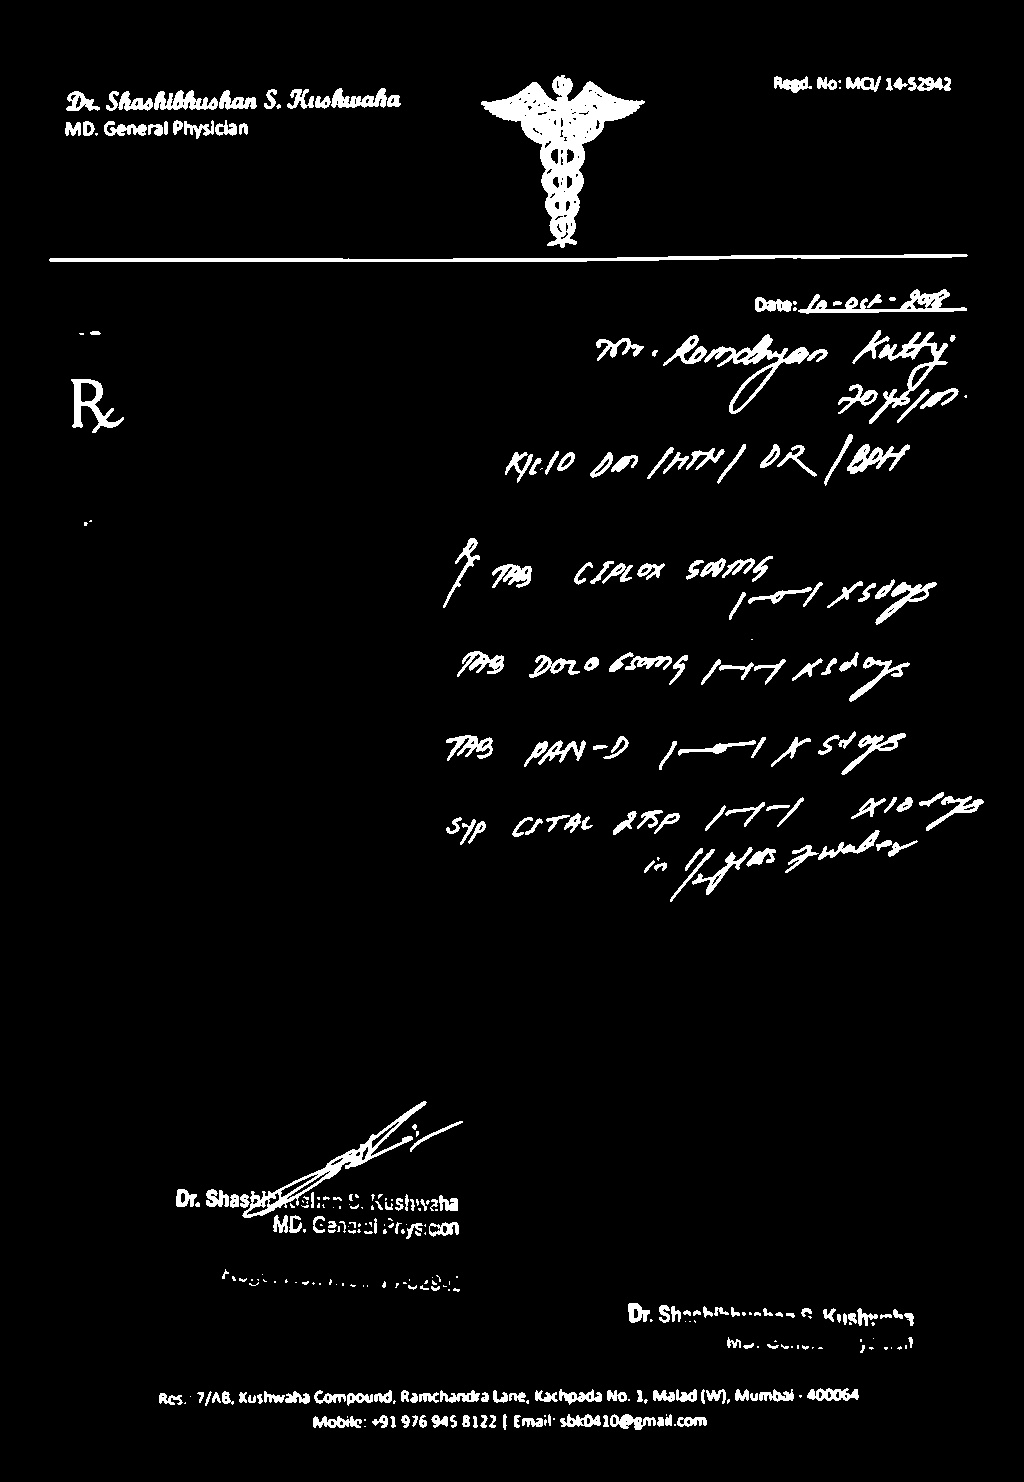 Dr. Shashibhushan S. Kushwaha
MD. General Physician
Regd. No: MCI/ 14-52942
Date: 10-Oct-2018
Mr. Ramdhyan Kutty
70 yrs/m
Rx
K/C/O DM /HTN/ DR /BPH
Rx TAB CIPLOX 500mg
1-0-1 x5days
TAB DOLO 650mg 1-1-1 x5days
TAB PAN-D 1-0-1 x 5days
Syp CITAL 2TSP 1-1-1 x10days
in 1/2 glass water
Dr. Shashibhushan S. Kushwaha
MD. General Physician
Dr. Shashibhushan S. Kushwaha
Res.: 7/AB, Kushwaha Compound, Ramchandra Lane, Kachpada No. 1, Malad (W), Mumbai - 400064
Mobile: +91 976 945 8122 | Email: sbk0410@gmail.com